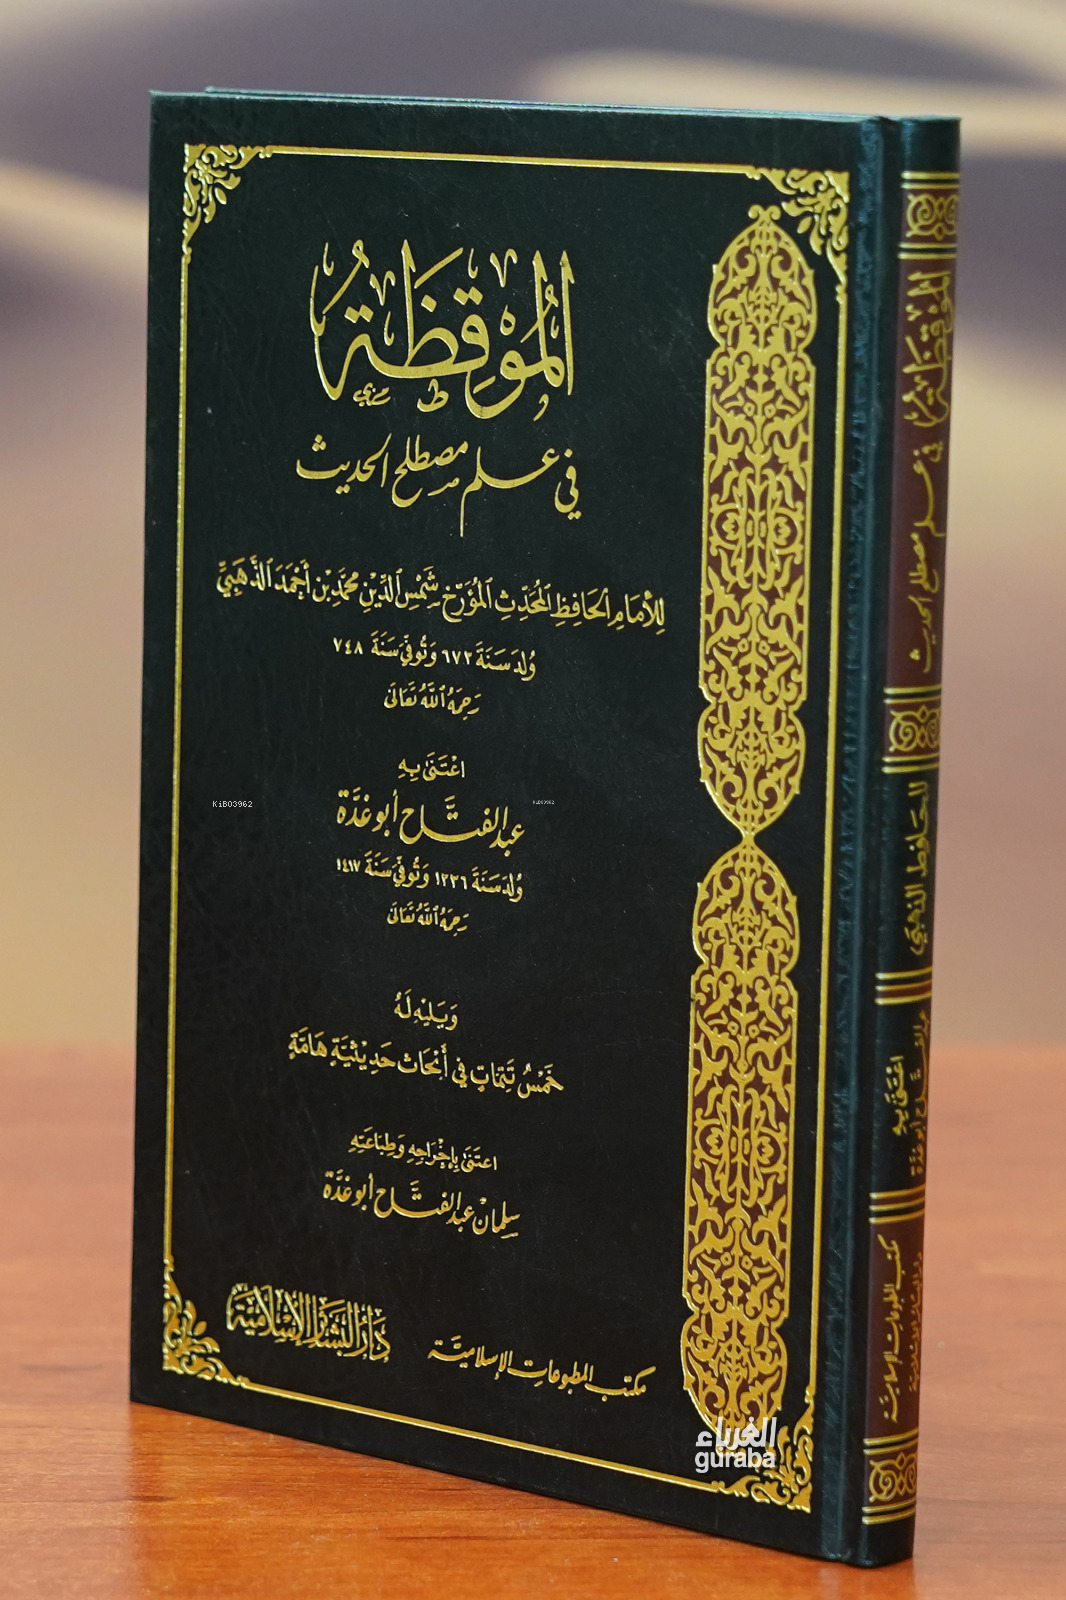 المُوْقِظَةُ
في علم مصطلح الحديث
لِلإمَامِ الحَافِظِ المُحَدِّثِ المُؤَرِّخِ شَمْسِ الدِّيْنِ مُحَمَّدِ بْنِ أَحْمَدَ الذَّهَبِيِّ
وُلِدَ سَنَةَ ٦٧٣ وَتُوُفِّيَ سَنَةَ ٧٤٨
رَحِمَهُ اللَّهُ تَعَالَى
اعْتَنَى بِهِ
عبد الفتَّاح أبو غدَّة
وُلِدَ سَنَةَ ١٣٣٦ وَتُوُفِّيَ سَنَةَ ١٤١٧
رَحِمَهُ اللَّهُ تَعَالَى
KiB03962
KiB03962
وَيَلِيْهِ لَهُ
خَمْسُ تَتِمَّاتٍ في أَبْحَاثٍ حَدِيْثِيَّةٍ هَامَّةٍ
اعتَنَى بِإِخْرَاجِهِ وَطِبَاعَتِهِ
سلمان عبد الفتَّاح أبو غدَّة
مكتب المطبوعات الإسلاميَّة
دَارُ البَشَائِرِ الإِسْلَامِيَّة
الغرباء
guraba
المُوْقِظَةُ في علم مصطلح الحديث
للحافظ الذهبي
اعْتَنَى بِهِ
عبد الفتَّاح أبو غدَّة
مكتب المطبوعات الإسلاميَّة